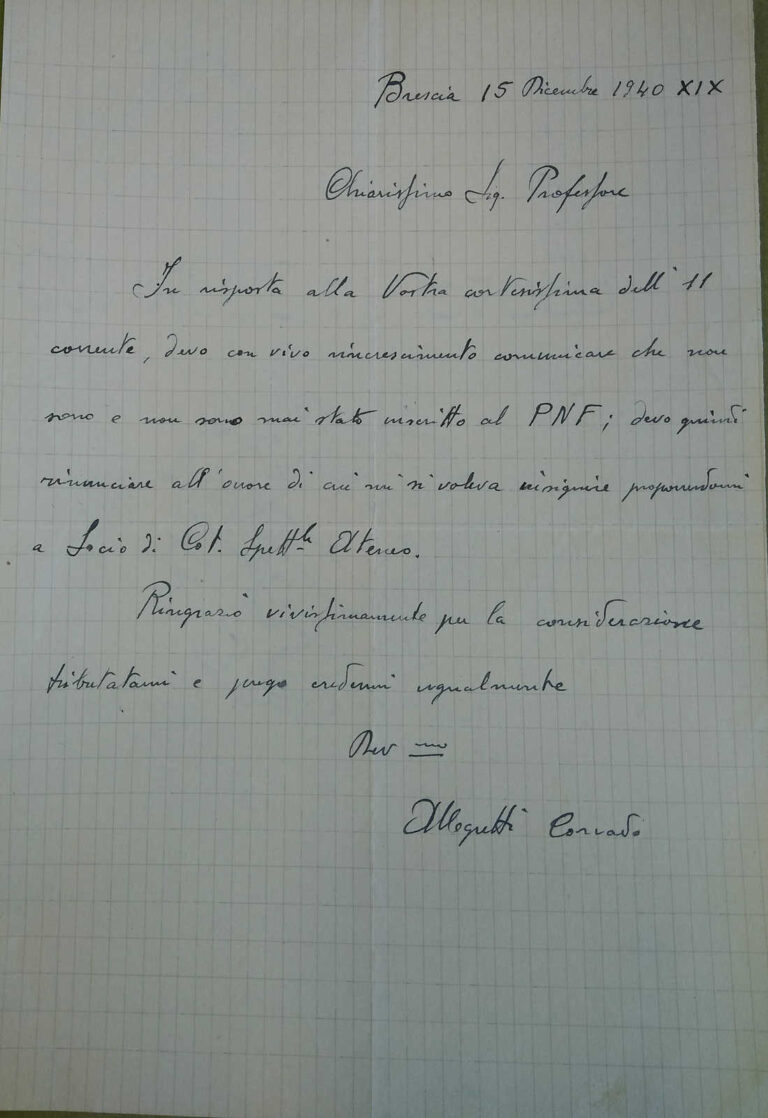 Brescia 15 Dicembre 1940 XIX
Chiarissimo Sig. Professore
In risposta alla Vostra cortesissima dell' 11
corrente, devo con vivo rincrescimento comunicare che non
sono e non sono mai stato inscritto al PNF; devo quindi
rinunciare all'onore di cui mi si voleva insignire proponendomi
a Socio di Cot. Spett.le Ateneo.
Ringrazio vivissimamente per la considerazione
tributatami e prego credermi ugualmente
Dev mo
Allegretti Corrado